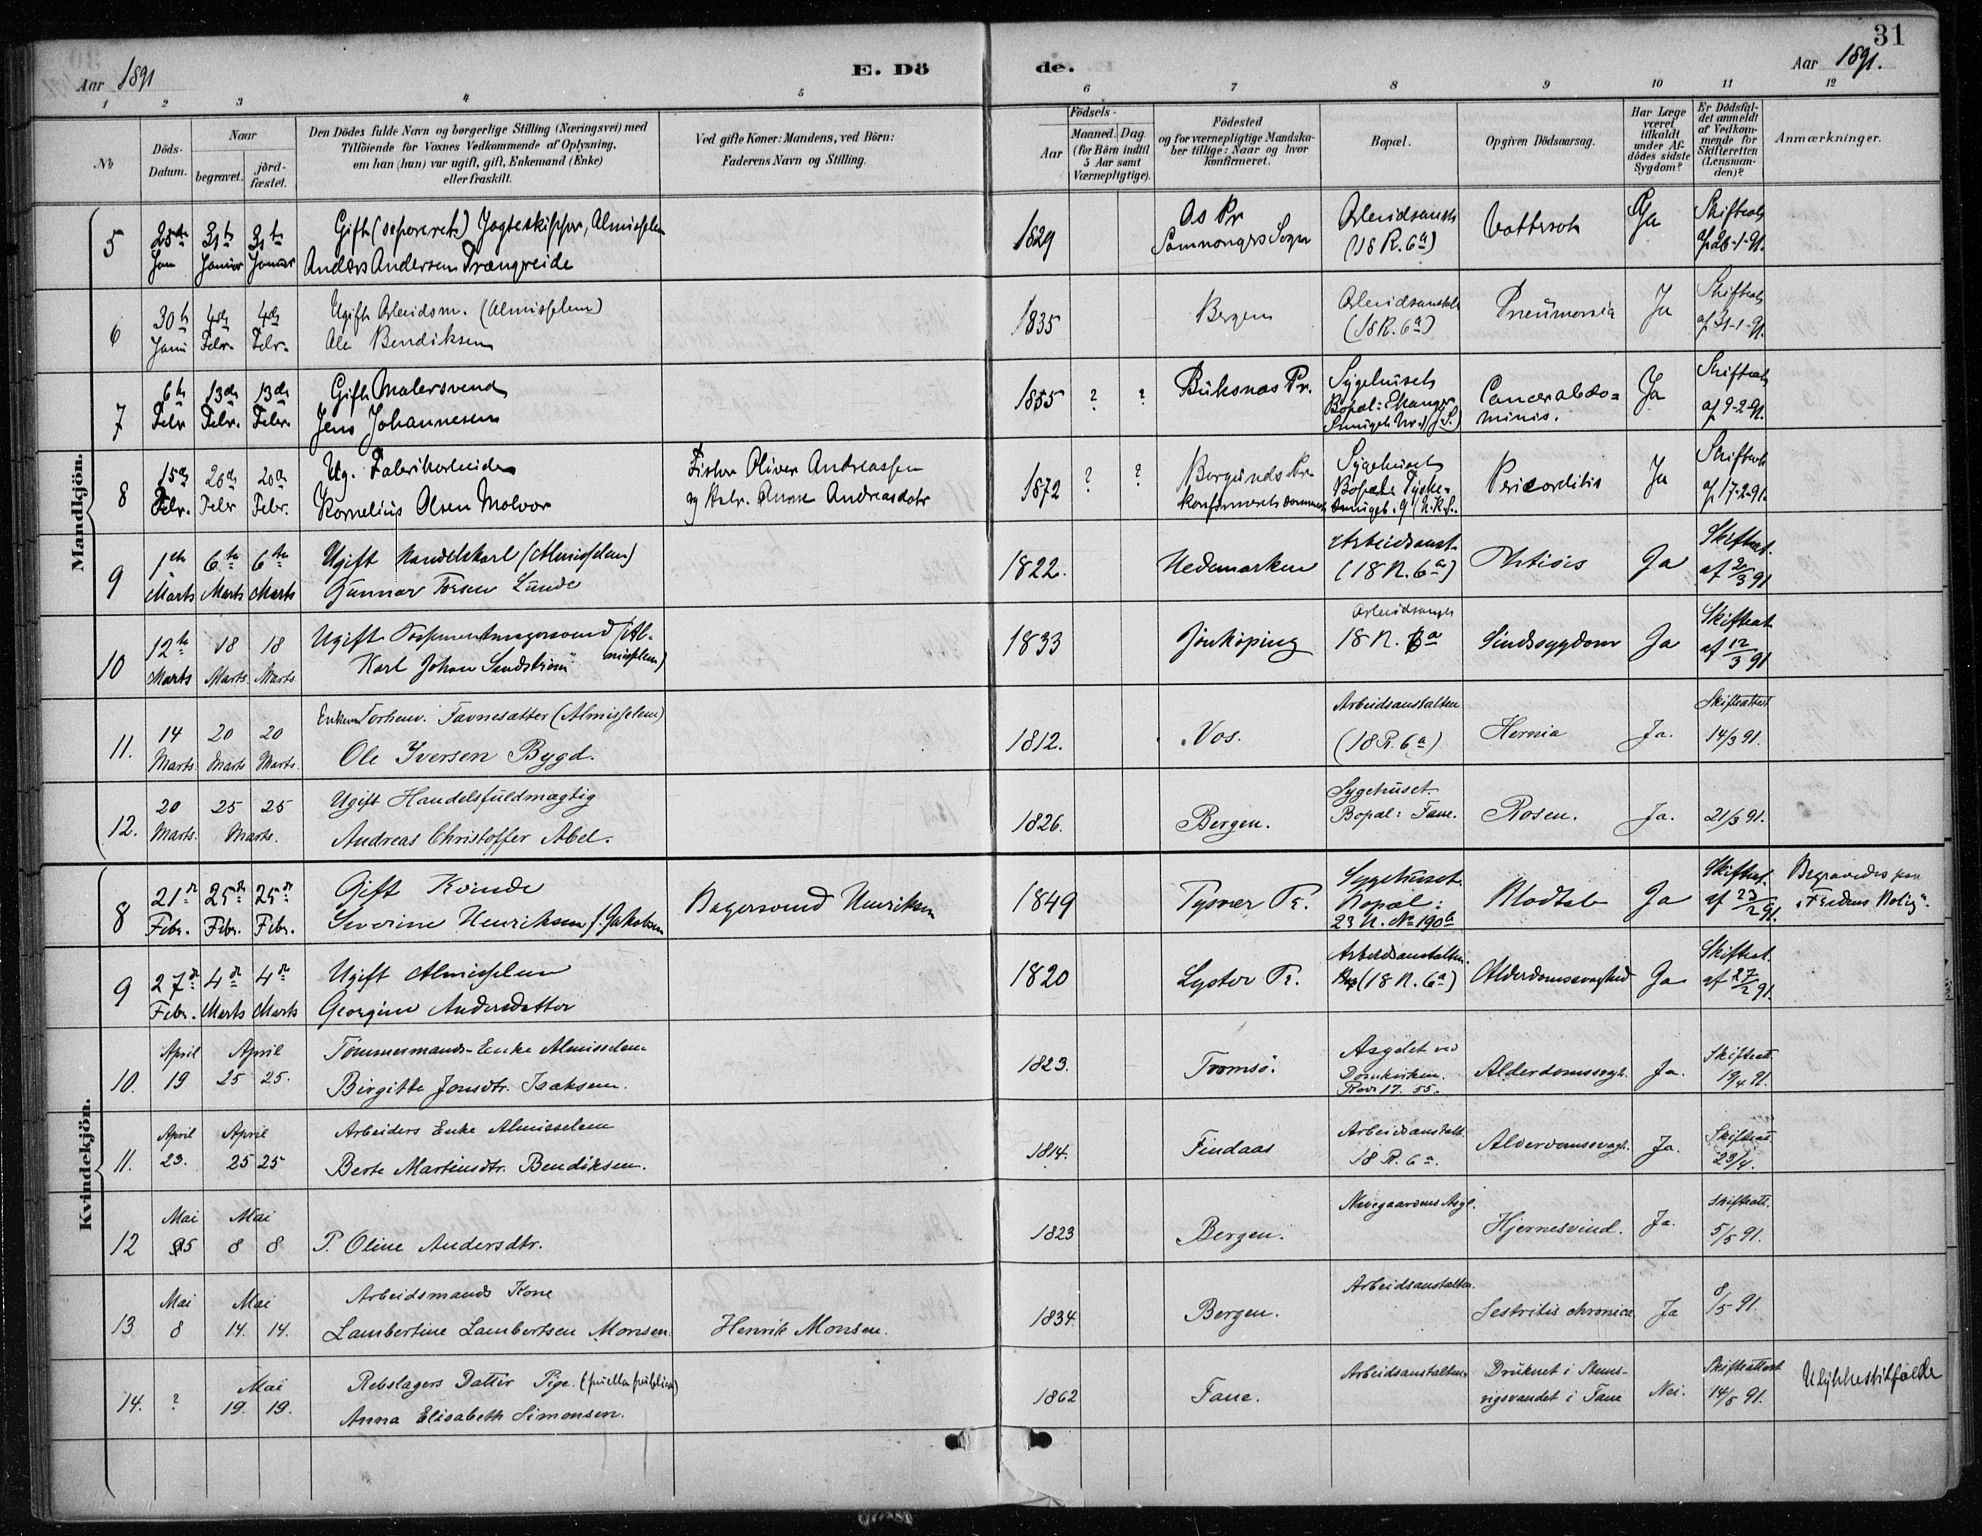 31
Aar 1891
E. Dö
de.
Aar 1891.
1 2 3 4 5 6 7 8 9 10 11 12
No
Döds-
Datum.
Naar
begravet.
jord-
fæstet.
Den Dödes fulde Navn og borgerlige Stilling (Næringsvei) med
Tilföiende for Voxnes Vedkommende af Oplysning,
om han (hun) var ugift, gift, Enkemand (Enke)
eller fraskilt.
Ved gifte Koner: Mandens, ved Börn:
Faderens Navn og Stilling.
Födsels-
Aar
Maaned. Dag.
(for Börn indtil
5 Aar samt
Værnepligtige).
Födested
og for værnepligtige Mandska-
ber tillige: Naar og hvor
konfirmeret.
Bopæl.
Opgiven Dödsaarsag.
Har Læge
været
tilkaldt
under Af-
dödes sidste
Sygdom?
Er Dödsfal-
det anmeldt
af Vedkom-
mende for
Skifteretten
(Lensman-
den)?
Anmærkninger.
Mandkjön.
5
25de Jan
31te Januar
31te Januar
Gift (separeret) Jagteskipper, Almisselem
Anders Andersen Trængreide
1829
Os Pr
Samnangers Sogn
Arbeidsanst
(18 R. 6a)
Vattersot
Ja
Skifteat
af 26-1-91.
6
30te Janu
4de Febr.
4de Febr.
Ugift Arbeidsm. (Almisselem)
Ole Bendiksen
1835
Bergen
Arbeidsanstalt
(18 R. 6a)
Pneumonia
Ja
Skifteat
af 31-1-91.
7
6te Febr
13de Febr.
13de Febr.
Gift Malersvend
Jens Johannesen
1855 ? ?
Buksnæs Pr.
Sygehuset
Cancer abdo=
minis.
Ja
Skifteat
af 9-2-91.
8
15de Febr.
20de Febr
20de Febr.
Ug. Fabrikarbeider
Kornelius Olsen Molvær
Fisker Oliver Andreassen
og Hstr. Anne Andreasdatr
1872 ? ?
Borgunds Pr.
Sygehuset
Pericorditis
Ja
Skifteat
af 17-2-91.
9
1ste Marts
6te Marts
6te Marts
Ugift Handelskarl (Almisselem)
Gunnar Toesen Lunde
1822.
Hedemarken
Arbeidsanst.
(18 R. 6a)
Phtisis
Ja
Skifteat.
af 2/3 91
10
12te Marts
18 Marts.
18 Marts.
Karl Johan Sandström
1833
Jönköping
Arbeidsanst
18 R. 6a
Sindssygdom
Ja
Skifteat.
af 12/3 91
11.
14 Marts.
20 Marts
20 Marts.
Enkem. Forhenv. Favnesætter (Almisselem)
Ole Iversen Bygd.
1812.
Vos.
Arbeidsanstalten
(18 R. 6a)
Hernia
Ja.
Skifteattest
14/3 91.
12.
20 Marts.
25 25
Marts.
Ugift Handelsfuldmægtig
Andreas Christoffer Abel.
1826.
Bergen.
Sygehuset.
Bopæl: Fane.
Rosen.
Ja.
21/3 91.
Kvindekjön.
8
21de Febr.
25de Febr.
25de Febr.
Gift Kvinde
Severine Henriksen f. Jakobsen
Bagersvend Henriksen
1849
Tysvær Pr.
Sygehuset.
Bopæl:
23 R. No 190b
Blodtab
Ja
Skifteat.
af 23/2 91.
Begravedes paa
"Fredens Bolig".
9
27de Febr.
4de Marts
4de Marts
Ugift Almisselem
Georgine Andersdatter
1820
Lyster Pr.
Arbeidsanstalten.
(18 R. 6a)
Alderdomssvaghed
Ja
Skifteat.
af 27/2 91.
10.
April 19
April
25 25.
Tömmermands-Enke Almisselem
Birgitte Jonsdtr. Isaksen.
1823.
Tromsö.
Asylet ved
Domkirken.
Rode 17. 55.
Alderdomssvagh.
Ja.
Skifteatt.
19/4 91.
11.
April 23.
April
25 25
Arbeiders Enke Almisselem
Berte Martinsdtr. Bendiksen.
1814.
Findaas
Arbeidsanstalt.
18 R. 6a.
Alderdomssvagh.
Ja.
Skifteatt.
23/4.
12
Mai 5
Mai
8 8
P. Oline Andersdtr.
1823
Bergen.
Hjernesvind.
Ja.
Skifteatt.
5/5 91.
13
Mai 8
Mai
14. 14.
Arbeidsmands Kone
Lambertine Lambertsen Monsen.
Henrik Monsen.
1834
Bergen.
Arbeidsanstalten.
chronica
Ja
8/5 91.
14.
?
Mai
19. 19.
Rebslagers Datter Pige. (puella publica)
Anna Elisabeth Simonsen.
1862
Fane.
Arbeidsanstalten.
Druknet i Stens-
vigsvandet i Fane
Nei.
Skifteattest
14/5 91.
Ulykkestilfælde